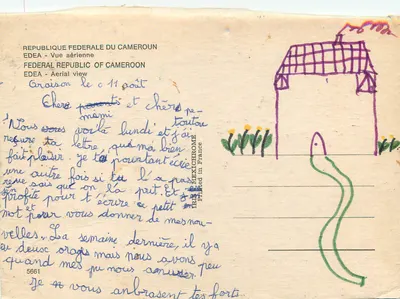 REPUBLIQUE FEDERALE DU CAMEROUN
EDEA - Vue aérienne
FEDERAL REPUBLIC OF CAMEROON
EDEA - Aerial view
le 11 août
Chers et chère
mami toutou
Nous voila lundi et j'ai
reçure ta lêtre, qui ma bien
fait plaisir. je té pourtant
une autre fois si tu l'a pas
reçue sais que on la
profite pour t'écrire ce petit
mot pour vous donner de mes nou-
velles. La semaine dernière, il y a
eu deux orages mais nous avons peu
quand mes pu nous amuser.
Je vous anbrasent tes forts
5661
Printed in France